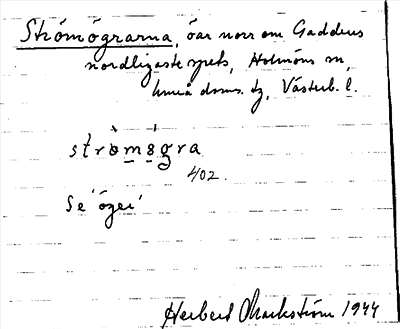 Strömögrarna, öar norr om Gaddens
nordligaste spets, Holmöns sn,
Umeå doms. tg, Västerb. l.
strömögra
402.
Se
Herbert Markström 1944